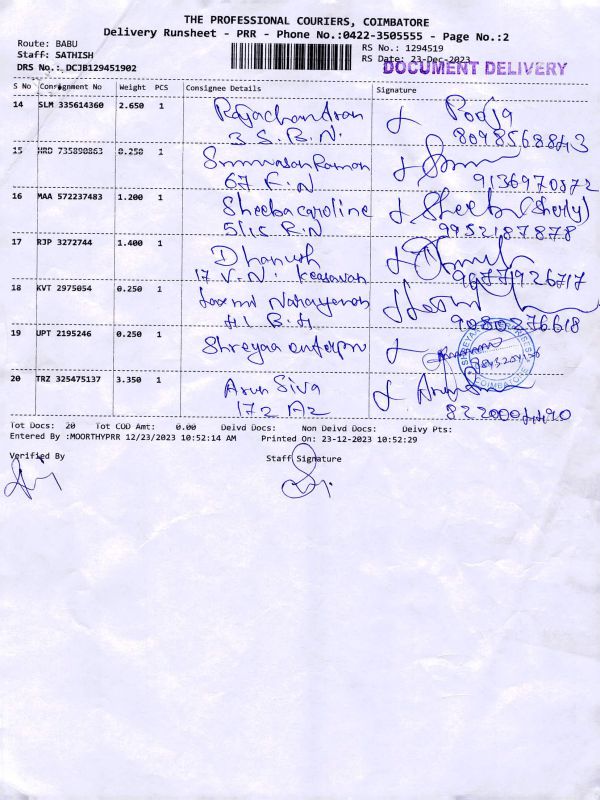 THE PROFESSIONAL COURIERS, COIMBATORE
Delivery Runsheet - PRR - Phone No.:0422-3505555 - Page No.:2
Route: BABU
Staff: SATHISH
DRS No.: DCJB129451902
RS No.: 1294519
RS Date: 23-Dec-2023
DOCUMENT DELIVERY
S No Consignment No Weight PCS Consignee Details Signature
14 SLM 335614360 2.650 1 Rajachandran Pooja
3 S.B.N. 8098568843
15 HRD 735890863 0.250 1 Srinivasan Raman
67 F.N 9136970572
16 MAA 572237483 1.200 1 Sheeba caroline Sheeba (Sherly)
511C R.N 9952187878
17 RJP 3272744 1.400 1 Dhanush
17 V.N. Keasavan 9677926717
18 KVT 2975054 0.250 1 Laxmi Narayanan
H1 B.H 9080276618
19 UPT 2195246 0.250 1 Shreyaa
COIMBATORE
20 TRZ 325475137 3.350 1 Arun Siva
172 A2
Tot Docs: 20 Tot COD Amt: 0.00 Delvd Docs: Non Delvd Docs: Delvy Pts:
Entered By :MOORTHYPRR 12/23/2023 10:52:14 AM Printed On: 23-12-2023 10:52:29
Verified By Staff Signature